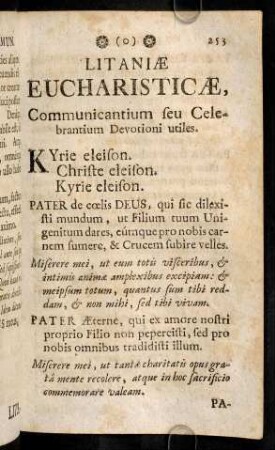 (0) 253
LITANIÆ
EUCHARISTICÆ,
Communicantium ſeu Cele-
brantium Devotioni utiles.
Kyrie eleiſon.
Chriſte eleiſon.
Kyrie eleiſon.
PATER de cœlis DEUS, qui ſic dilexi-
ſti mundum, ut Filium tuum Uni-
genitum dares, eúmque pro nobis car-
nem ſumere, & Crucem ſubire velles.
Miſerere mei, ut eum totis viſceribus, &
intimis animæ amplexibus excipiam: &
meipſum totum, quantus ſum tibi red-
dam, & non mihi, ſed tibi vivam.
PATER Æterne, qui ex amore noſtri
proprio Filio non peperciſti, ſed pro
nobis omnibus tradidiſti illum.
Miſerere mei, ut tantæ charitatis opus gra-
tâ mente recolere, atque in hoc ſacrificio
commemorare valeam.
PA-